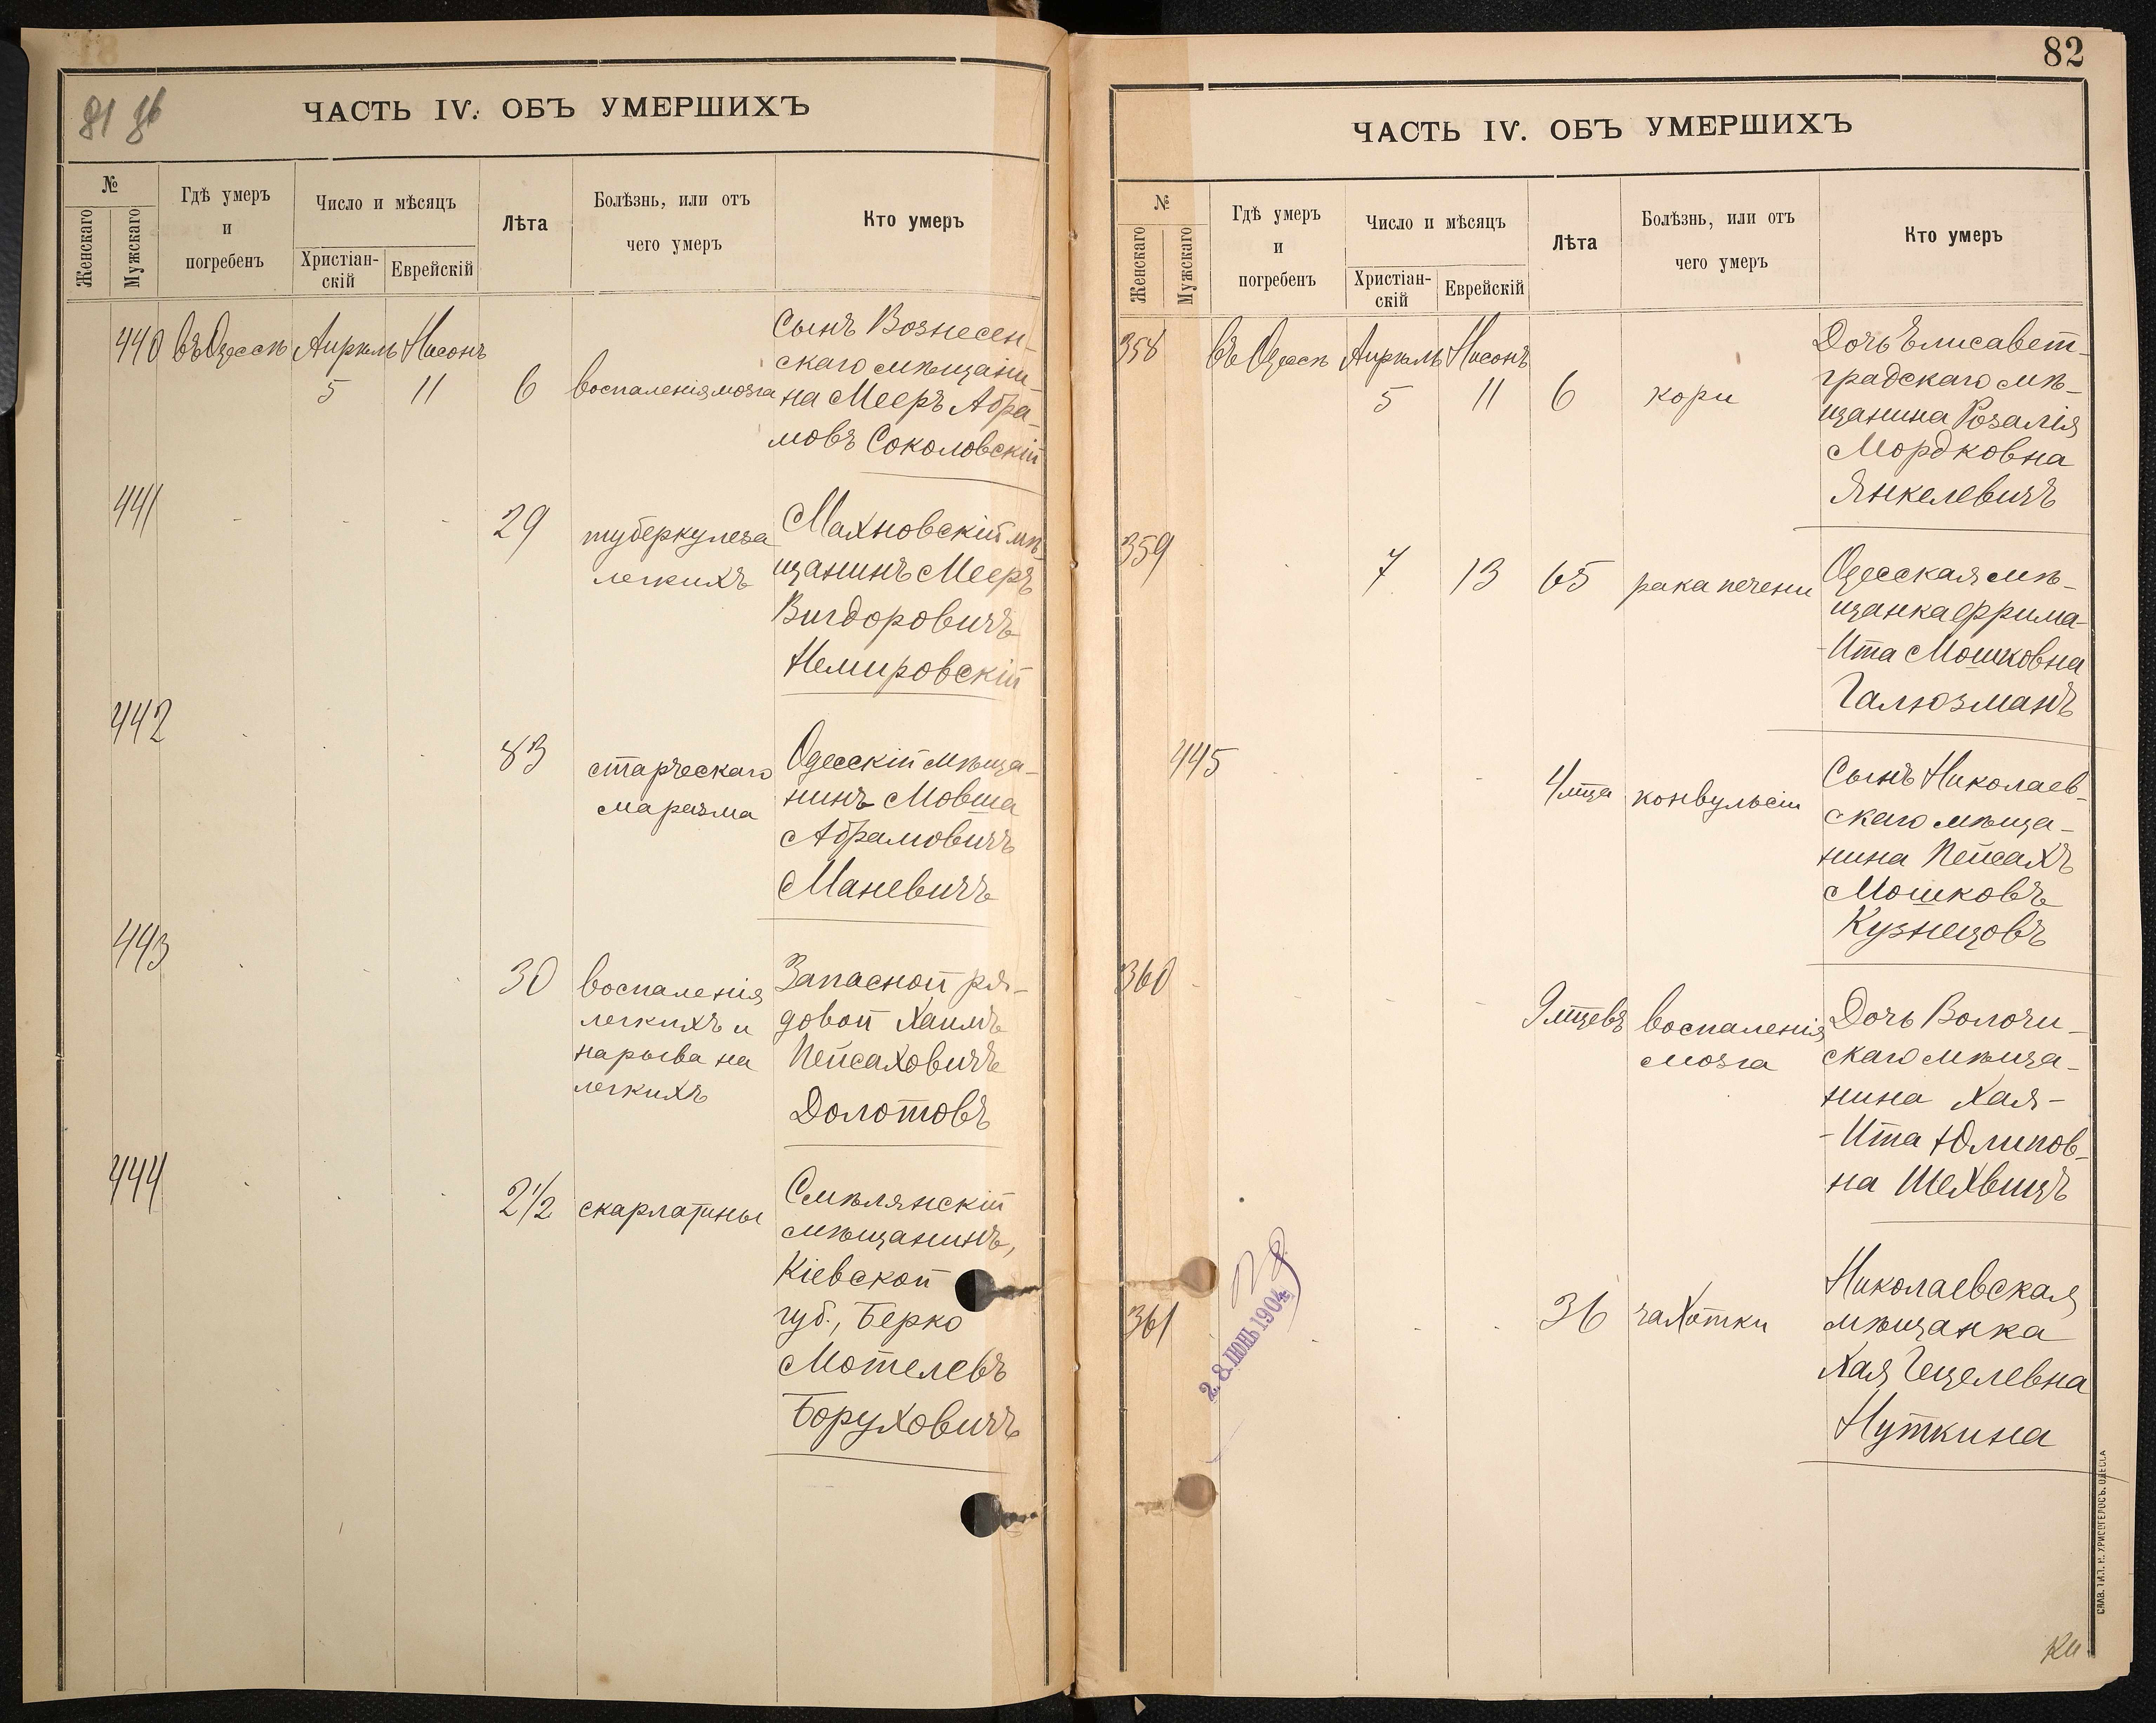 81 об
ЧАСТЬ IV. ОБЪ УМЕРШИХЪ
№
Женскаго
Мужскаго
Гдѣ умеръ
и
погребенъ
Число и мѣсяцъ
Христіан-
скій
Еврейскій
Лѣта
Болѣзнь, или отъ
чего умеръ
Кто умеръ
440 въ Одессѣ Апрѣль Нисонъ
5 11 6 воспаленія мозга
Сынъ Вознесен-
скаго мѣщани-
на Мееръ Абра-
мовъ Соколовскій
441
29 туберкулеза
легкихъ
Махновскій мѣ-
щанинъ Мееръ
Вигдоровичъ
Немировскій
442
83 старческаго
маразма
Одесскій мѣща-
нинъ Мовша
Абрамовичъ
Маневичъ
443
30 воспаленія
легкихъ и
нарыва на
легкихъ
Запасной ря-
довой Хаимъ
Пейсаховичъ
Долотовъ
444
2½ скарлатины
Смѣлянскій
мѣщанинъ,
Кіевской
губ., Берко
Мотелевъ
Боруховичъ
82
ЧАСТЬ IV. ОБЪ УМЕРШИХЪ
№
Женскаго
Мужскаго
Гдѣ умеръ
и
погребенъ
Число и мѣсяцъ
Христіан-
скій
Еврейскій
Лѣта
Болѣзнь, или отъ
чего умеръ
Кто умеръ
358 въ Одессѣ Апрѣль Нисонъ
5 11 6 кори
Дочь Елисавет-
градскаго мѣ-
щанина Розалія
Мордковна
Янкелевичъ
359
7 13 65 рака печени
Одесская мѣ-
щанка Фрима-
-Ита Мошковна
Галюзманъ
445
4 мца конвульсіи
Сынъ Николаев-
скаго мѣща-
нина Пейсахъ
Мошковъ
Кузнецовъ
360
9 мцевъ воспаленія
мозга
Дочь Волочи-
скаго мѣща-
нина Хая-
-Ита Юлипов-
на Шехвицъ
361
36 чахотки
Николаевская
мѣщанка
Хая Гецелевна
Нуткина
28 ІЮНЬ 1904
САЛВ. ТИП. Н. ХРИСОГЕЛОСЪ. ОДЕССА